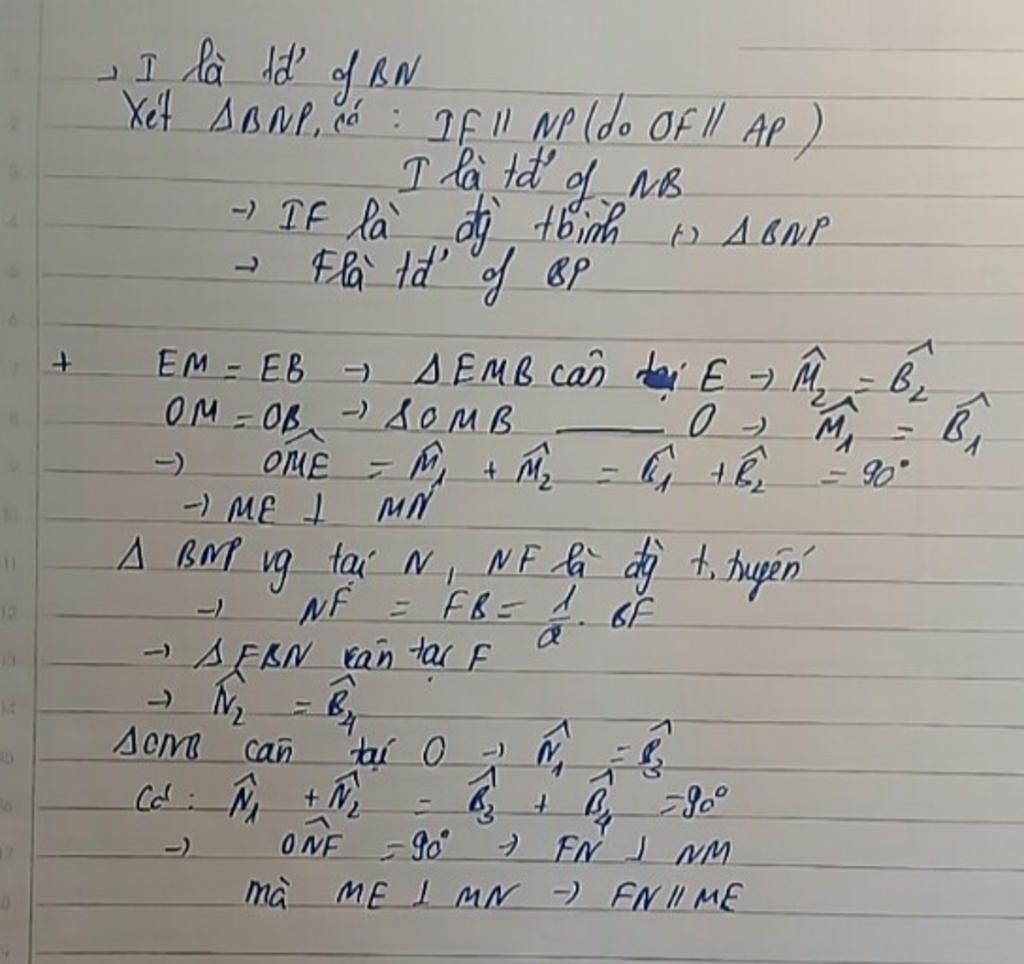 → I là tđ' of BN
Xét ΔBNP, có : IF // NP (do OF // AP)
I là tđ' of NB
→ IF là đg̀ tbình () ΔBNP
→ F là tđ' of BP
+ EM = EB → ΔEMB cân tại E → M̂₂ = B̂₂
OM = OB → ΔOMB —— O → M̂₁ = B̂₁
→ OM̂E = M̂₁ + M̂₂ = B̂₁ + B̂₂ = 90°
→ ME ⊥ MN
Δ BNP vg tại N, NF là đg̀ t. tuyến
→ NF = FB = 1/2 . BF
→ ΔFBN cân tại F
→ N̂₂ = B̂₄
ΔONB cân tại O → N̂₁ = B̂₃
Có : N̂₁ + N̂₂ = B̂₃ + B̂₄ = 90°
→ ON̂F = 90° → FN ⊥ NM
mà ME ⊥ MN → FN // ME